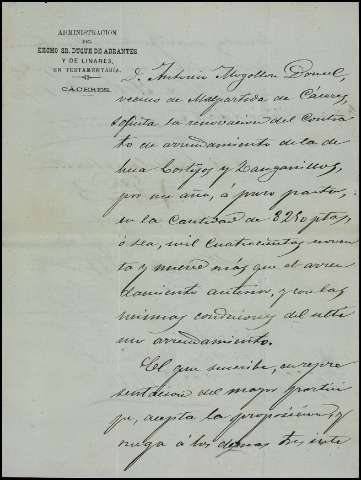 ADMINISTRACION
DEL
EXCMO. SR. DUQUE DE ABRANTES
Y DE LINARES,
EN TESTAMENTARÍA.
CÁCERES.
D. Antonio Mogollon
vecino de Malpartida de Cáceres,
solicita la renovacion del contra
to de arrendamiento de la de
hesa Cortijos y Zanganillos,
por un año, á puro pasto,
en la cantidad de 8250 ptas,
ó sea, mil cuatrocientas noven
ta y nueve más que el arren
damiento anterior, y con las
mismas condiciones del ulti
mo arrendamiento.
El que suscribe, en repre
sentacion del mayor partici
pe, acepta la proposicion, y
ruega á los demas